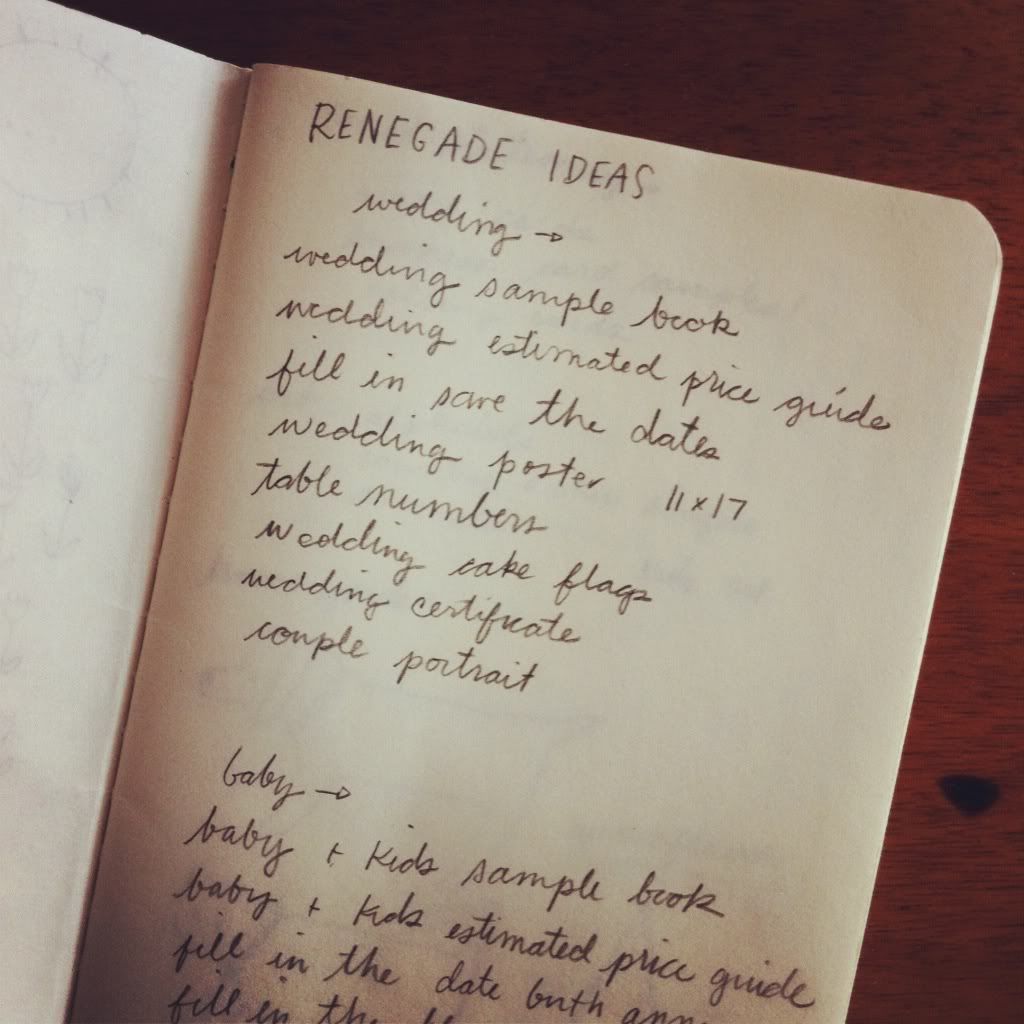 RENEGADE IDEAS
wedding →
wedding sample book
wedding estimated price guide
fill in save the dates
wedding poster 11x17
table numbers
wedding cake flags
wedding certificate
couple portrait
baby →
baby + kids sample book
baby + kids estimated price guide
fill in the date birth
fill in the